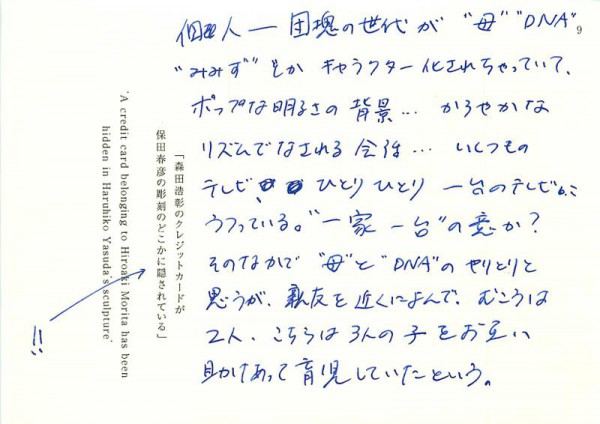 個人 — 団塊の世代が "母" "DNA"
"みみず" とか キャラクター化されちゃっていて、
ポップな明るさの背景… かろやかな
リズムでなされる会話… いくつもの
テレビ ひとりひとり 一台のテレビに
うつっている。"一家一台"の意か?
そのなかで "母"と"DNA"のやりとりと
思うが、親友を近くによんで、むこうは
2人、こちらは3人の子をお互い
助けあって育児していたという。
9
「森田浩彰のクレジットカードが
保田春彦の彫刻のどこかに隠されている」
'A credit card belonging to Hiroaki Morita has been
hidden in Haruhiko Yasuda's sculpture'
!!